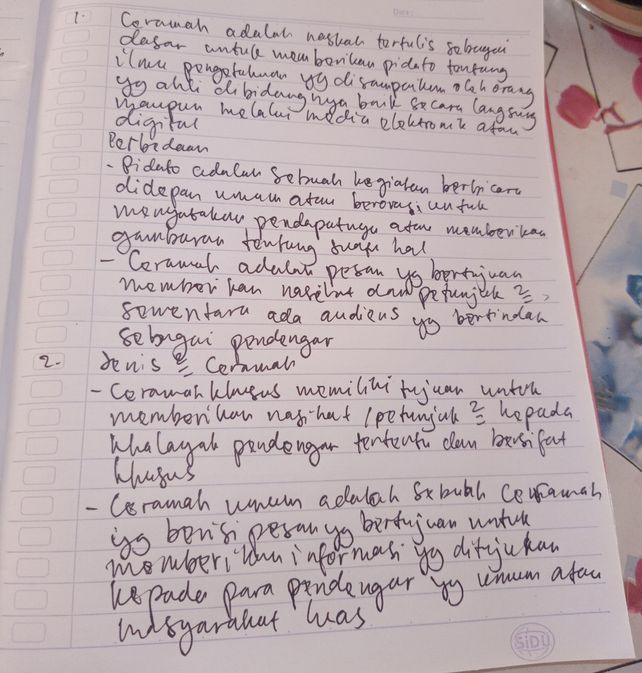 1. Ceramah adalah naskah tertulis sebagai
dasar untuk memberikan pidato tentang
ilmu pengetahuan yg disampaikan oleh orang
yg ahli dibidangnya baik secara langsung
maupun melalui media elektronik atau
digital
Perbedaan
- Pidato adalah sebuah kegiatan berbicara
didepan umum atau berorasi untuk
menyatakan pendapatnya atau memberikan
gambaran tentang suatu hal
- Ceramah adalah pesan yg bertujuan
memberikan nasihat dan petunjuk 2,
sementara ada audiens yg bertindak
sebagai pendengar
2. Jenis 2 Ceramah
- Ceramah khusus memiliki tujuan untuk
memberikan nasihat / petunjuk 2 kepada
khalayak pendengar tertentu dan bersifat
khusus
- Ceramah umum adalah sebuah ceramah
yg berisi pesan yg bertujuan untuk
memberikan informasi yg ditujukan
kepada para pendengar yg umum atau
masyarakat luas
SiDU